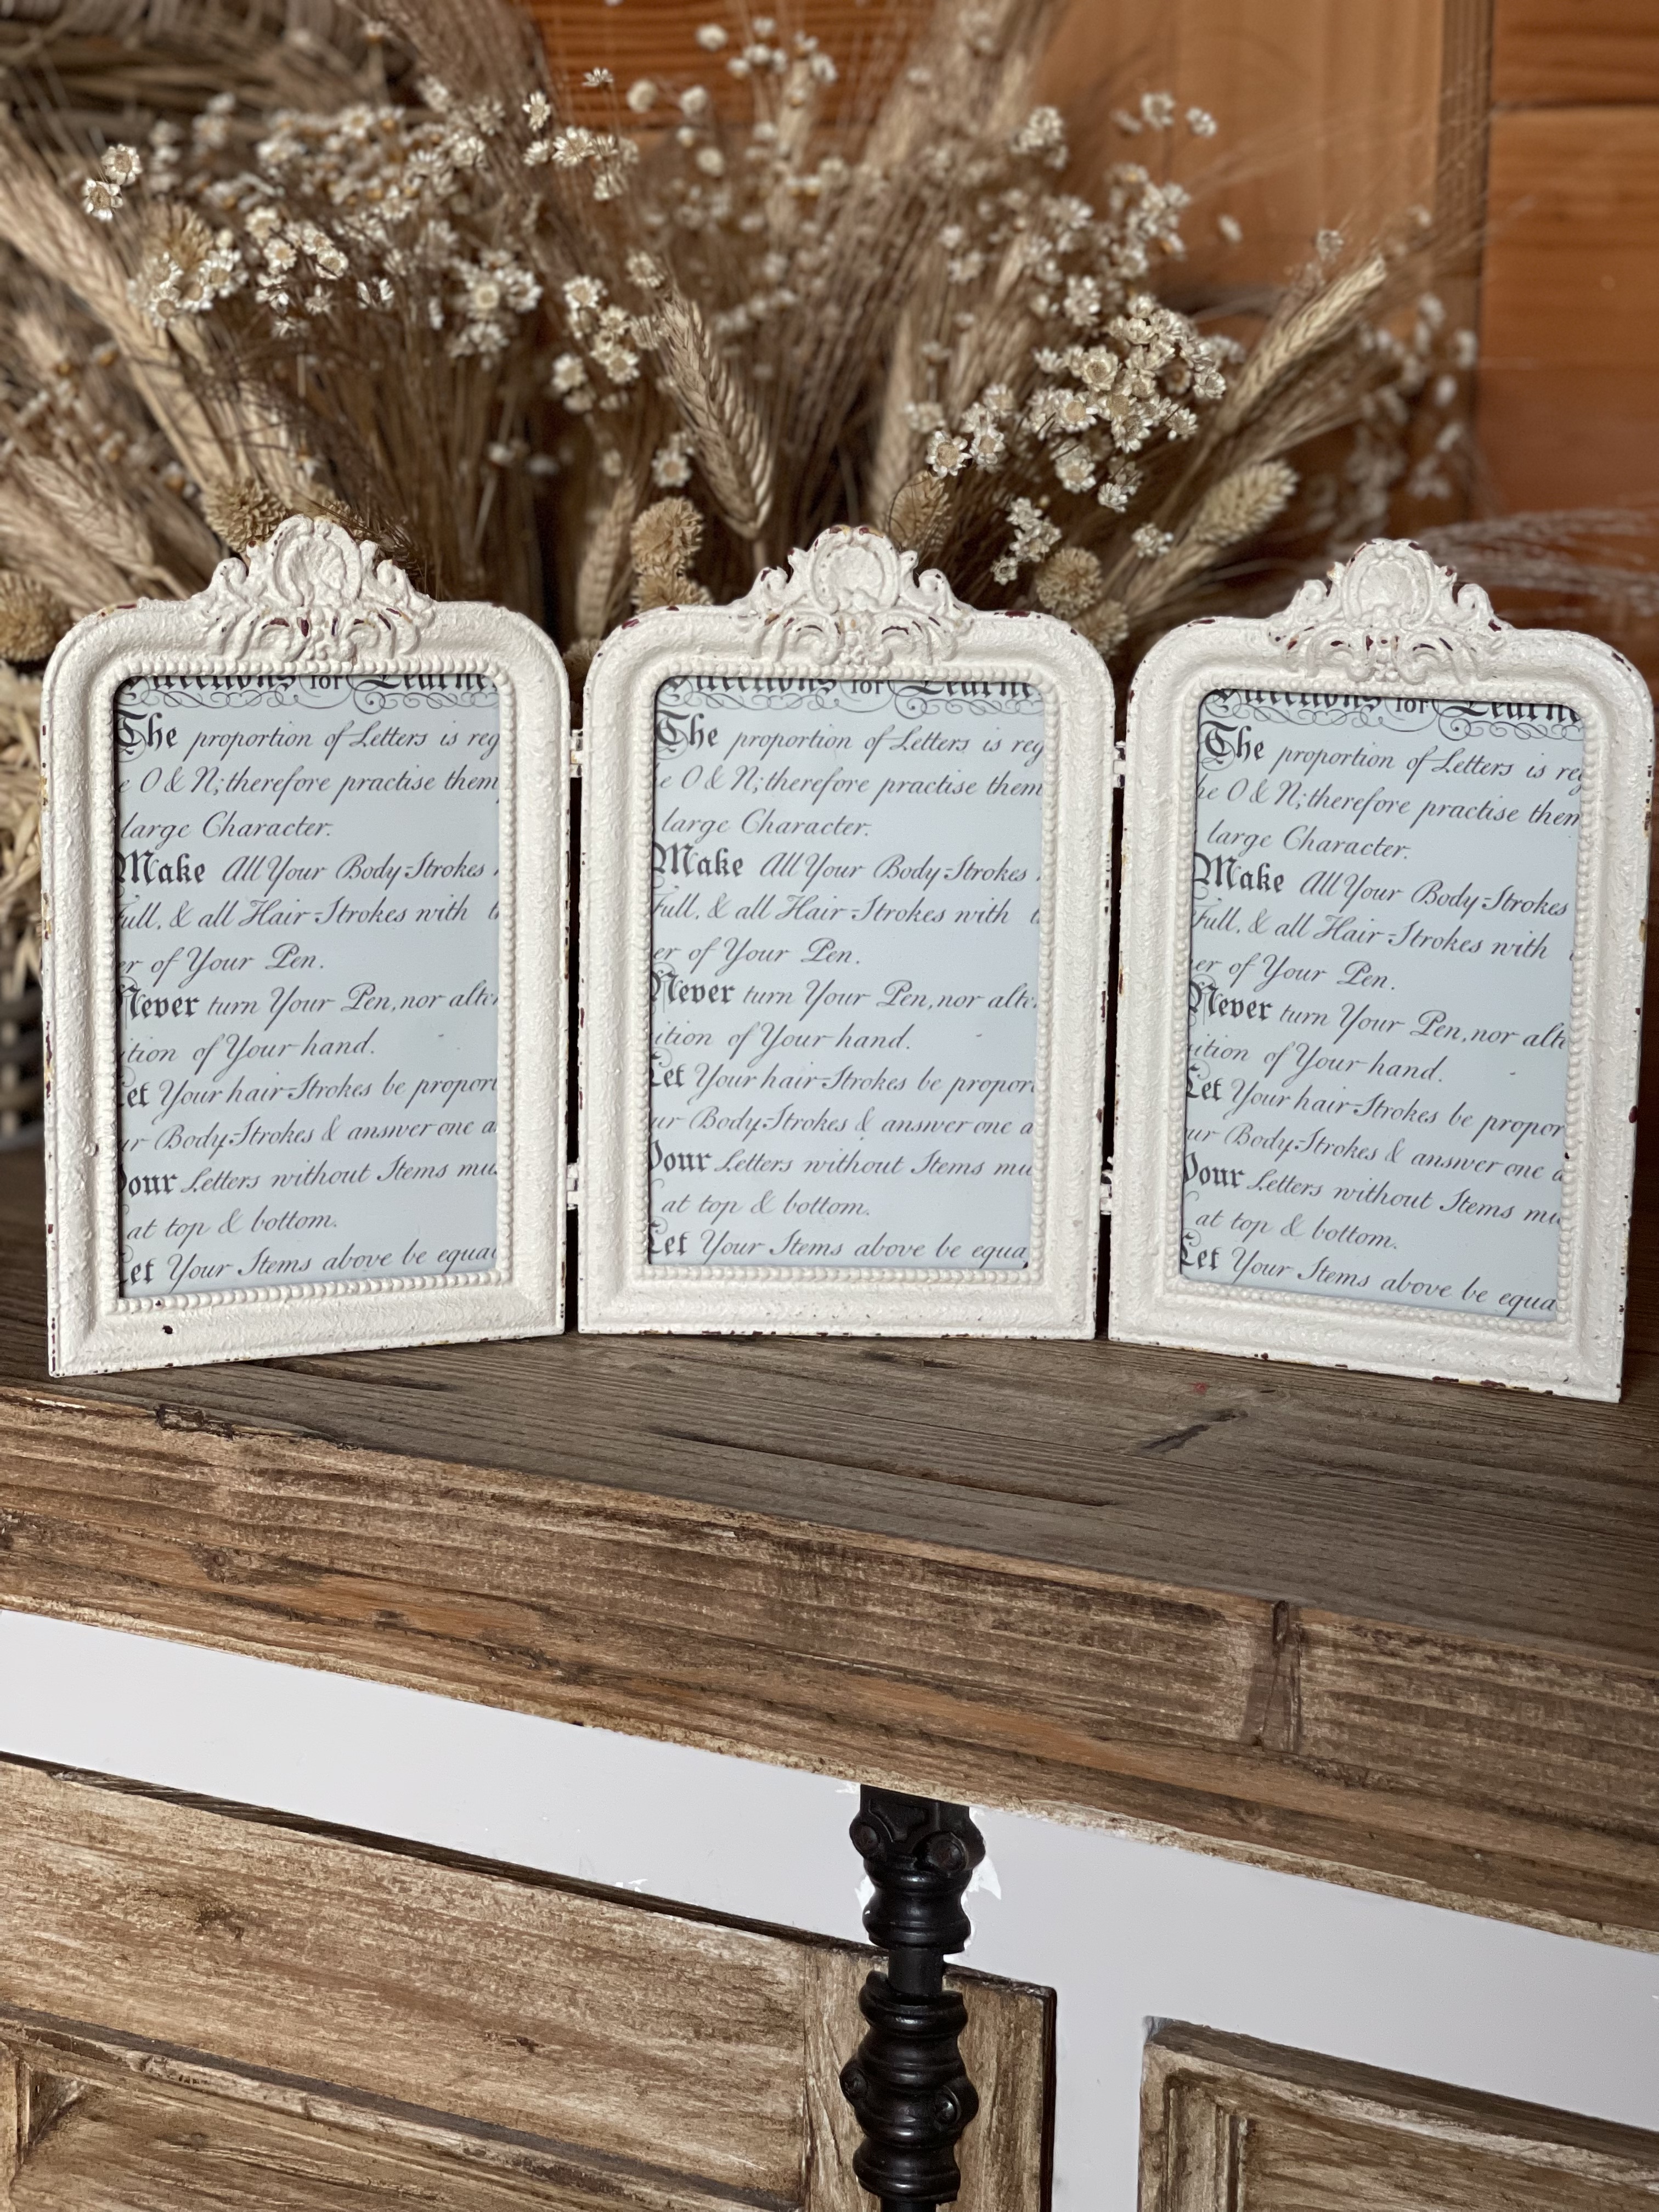 Directions for
The proportion of Letters is
O & N; therefore practise them
large Character.
Make All Your Body-Strokes
Full, & all Hair-Strokes with
of Your Pen.
Never turn Your Pen, nor
of Your hand.
Let Your hair-Strokes be
Body-Strokes & answer one
Your Letters without Items
at top & bottom.
Let Your Items above be
Directions for
The proportion of Letters is
O & N; therefore practise them
large Character.
Make All Your Body-Strokes
Full, & all Hair-Strokes with
of Your Pen.
Never turn Your Pen, nor
of Your hand.
Let Your hair-Strokes be
Body-Strokes & answer one
Your Letters without Items
at top & bottom.
Let Your Items above be
Directions for
The proportion of Letters is
O & N; therefore practise them
large Character.
Make All Your Body-Strokes
Full, & all Hair-Strokes with
of Your Pen.
Never turn Your Pen, nor
of Your hand.
Let Your hair-Strokes be
Body-Strokes & answer one
Your Letters without Items
at top & bottom.
Let Your Items above be